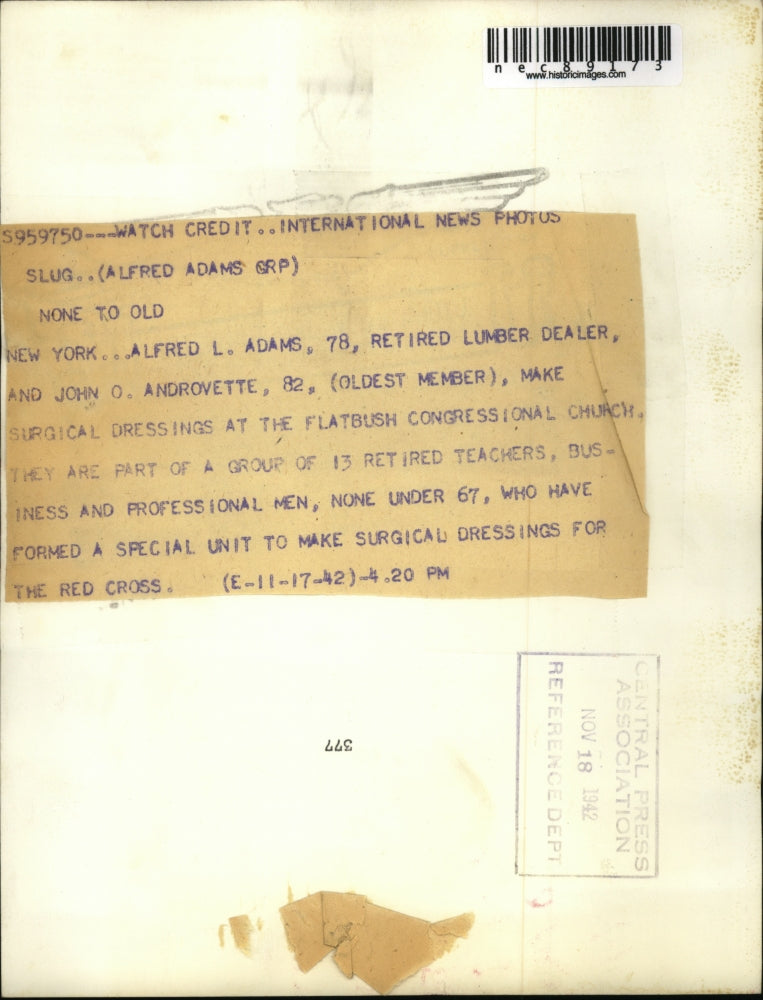 nec89173
www.historicimages.com
S959750---WATCH CREDIT..INTERNATIONAL NEWS PHOTOS
SLUG..(ALFRED ADAMS GRP)
NONE TO OLD
NEW YORK...ALFRED L. ADAMS, 78, RETIRED LUMBER DEALER,
AND JOHN O. ANDROVETTE, 82, (OLDEST MEMBER), MAKE
SURGICAL DRESSINGS AT THE FLATBUSH CONGRESSIONAL CHURCH.
THEY ARE PART OF A GROUP OF 13 RETIRED TEACHERS, BUS-
INESS AND PROFESSIONAL MEN, NONE UNDER 67, WHO HAVE
FORMED A SPECIAL UNIT TO MAKE SURGICAL DRESSINGS FOR
THE RED CROSS. (E-11-17-42)-4.20 PM
CENTRAL PRESS
ASSOCIATION
NOV 18 1942
REFERENCE DEPT
377